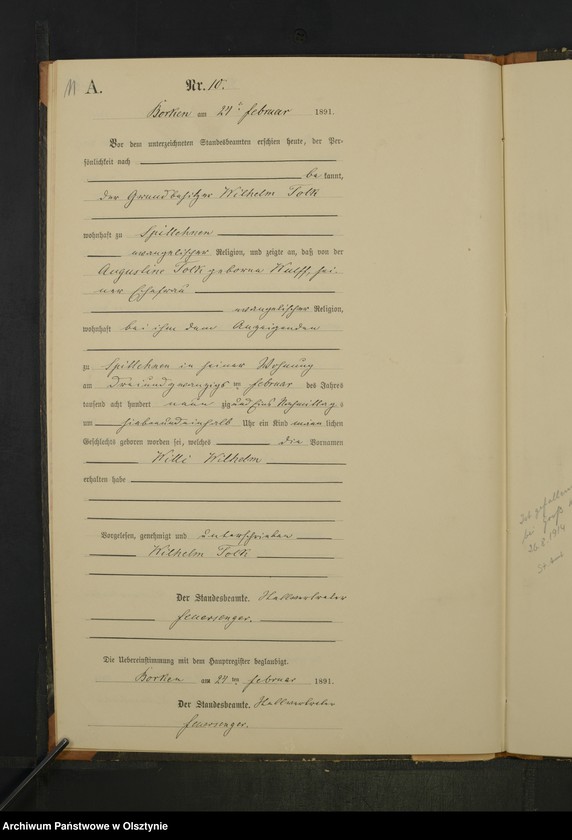 11 A. Nr. 10.
Borken am 27ᵗ Februar 1891.
Vor dem unterzeichneten Standesbeamten erschien heute, der Per-
sönlichkeit nach
be kannt,
der Grundbesitzer Wilhelm Tolk
wohnhaft zu Spillehnen
evangelischer Religion, und zeigte an, daß von der
Augustine Tolk geborne Wulff, sei-
ner Ehefrau
evangelischer Religion,
wohnhaft bei ihm dem Anzeigenden
zu Spillehnen in seiner Wohnung
am dreiundzwanzigsten Februar des Jahres
tausend acht hundert neun zig und Eins Nachmittags
um siebenundeinhalb Uhr ein Kind männ lichen
Geschlechts geboren worden sei, welches die Vornamen
Willi Wilhelm
erhalten habe
Vorgelesen, genehmigt und unterschrieben
Wilhelm Tolk
Der Standesbeamte. Stellvertreter
Feuersenger.
Die Uebereinstimmung mit dem Hauptregister beglaubigt.
Borken am 27ten Februar 1891.
Der Standesbeamte. Stellvertreter
Feuersenger.
gefallen
bei
26.8.1914
Archiwum Państwowe w Olsztynie